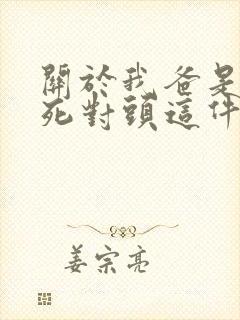 關於我爸是
死對頭這件
姜宗亮